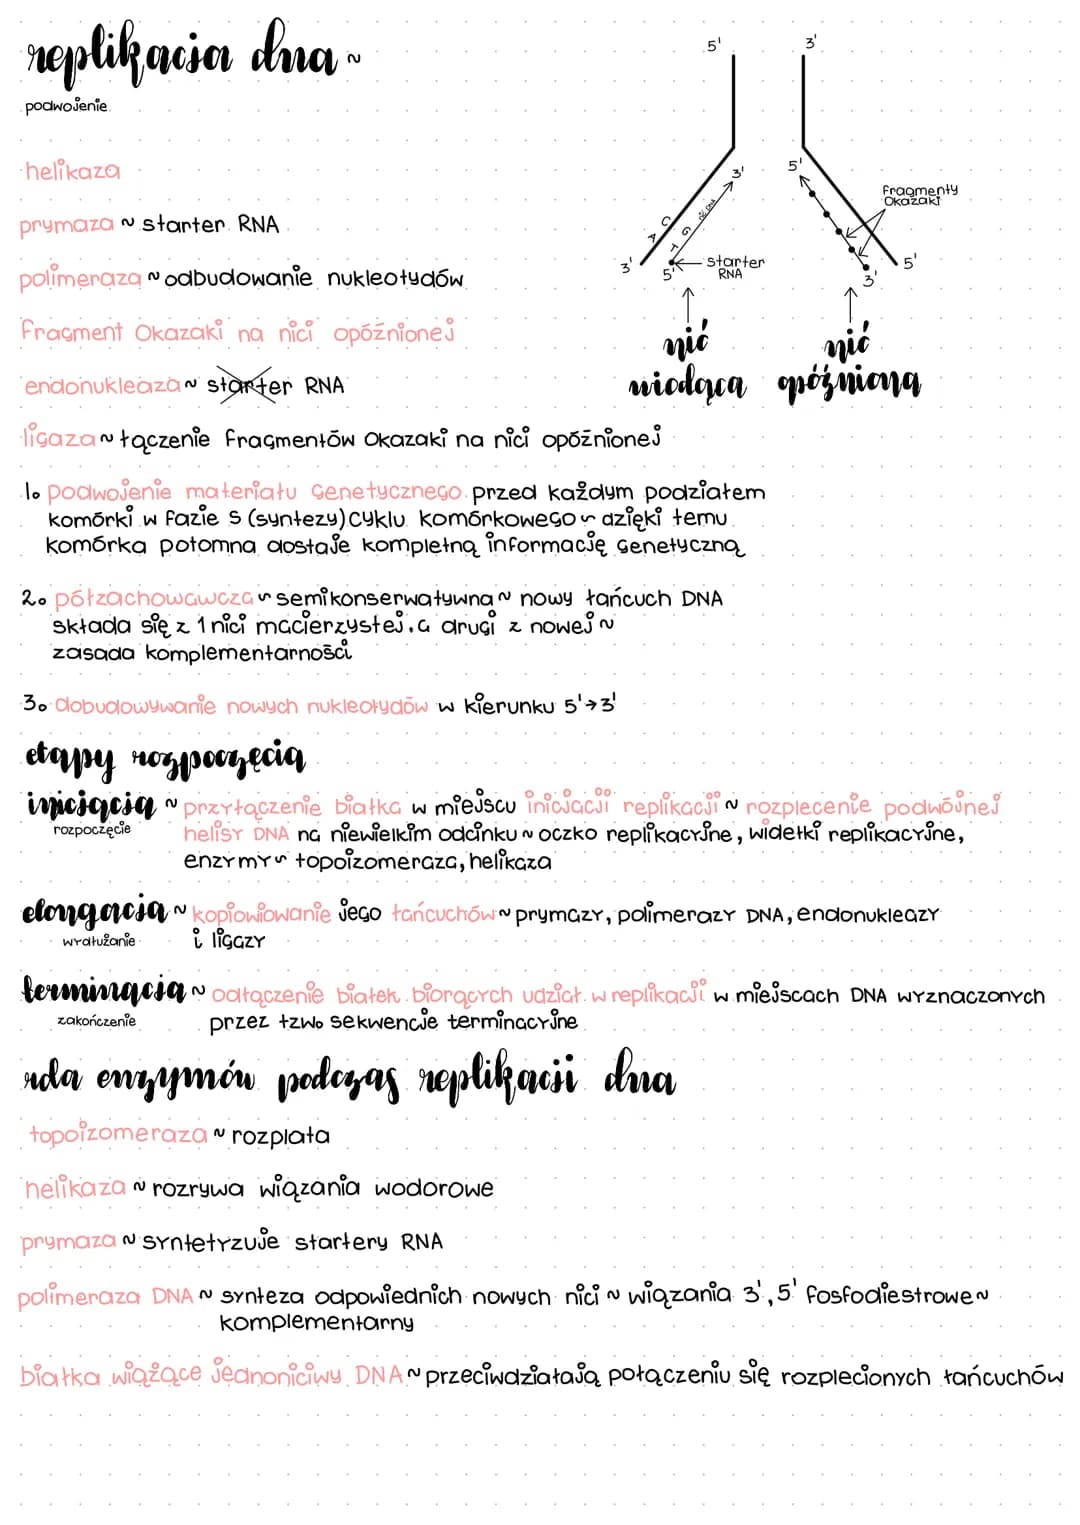 replikacja dna ~
podwojenie
5'
3'
helikaza
prymaza ~ starter RNA
polimeraza ~ odbudowanie nukleotydów
Fragment Okazaki na nici opóźnionej
endonukleaza ~ starter RNA
ligaza ~ łączenie fragmentów Okazaki na nici opóźnionej
3'
5'
Fragmenty
Okazaki
nić DNA
A C
T G
3'
5'
starter
RNA
3'
5'
nić
wiodąca
nić
opóźniona
1. podwojenie materiału genetycznego przed każdym podziałem
komórki w fazie S (syntezy) cyklu komórkowego ~ dzięki temu
komórka potomna dostaje kompletną informację genetyczną
2. półzachowawcza ~ semikonserwatywna ~ nowy łańcuch DNA
składa się z 1 nici macierzystej, a drugi z nowej ~
zasada komplementarności
3. dobudowywanie nowych nukleotydów w kierunku 5'→3'
etapy rozpoczęcia
inicjacja ~ przyłączenie białka w miejscu inicjacji replikacji ~ rozplecenie podwójnej
rozpoczęcie
helisy DNA na niewielkim odcinku ~ oczko replikacyjne, widełki replikacyjne,
enzymy ~ topoizomeraza, helikaza
elongacja ~ kopiowiowanie jego łańcuchów ~ prymazy, polimerazy DNA, endonukleazy
wydłużanie
i ligazy
terminacja ~ odłączenie białek biorących udział w replikacji w miejscach DNA wyznaczonych
zakończenie
przez tzw. sekwencje terminacyjne
rola enzymów podczas replikacji dna
topoizomeraza ~ rozplata
helikaza ~ rozrywa wiązania wodorowe
prymaza ~ syntetyzuje startery RNA
polimeraza DNA ~ synteza odpowiednich nowych nici ~ wiązania 3',5' fosfodiestrowe ~
komplementarny
białka wiążące jednoniciwy DNA ~ przeciwdziałają połączeniu się rozplecionych łańcuchów